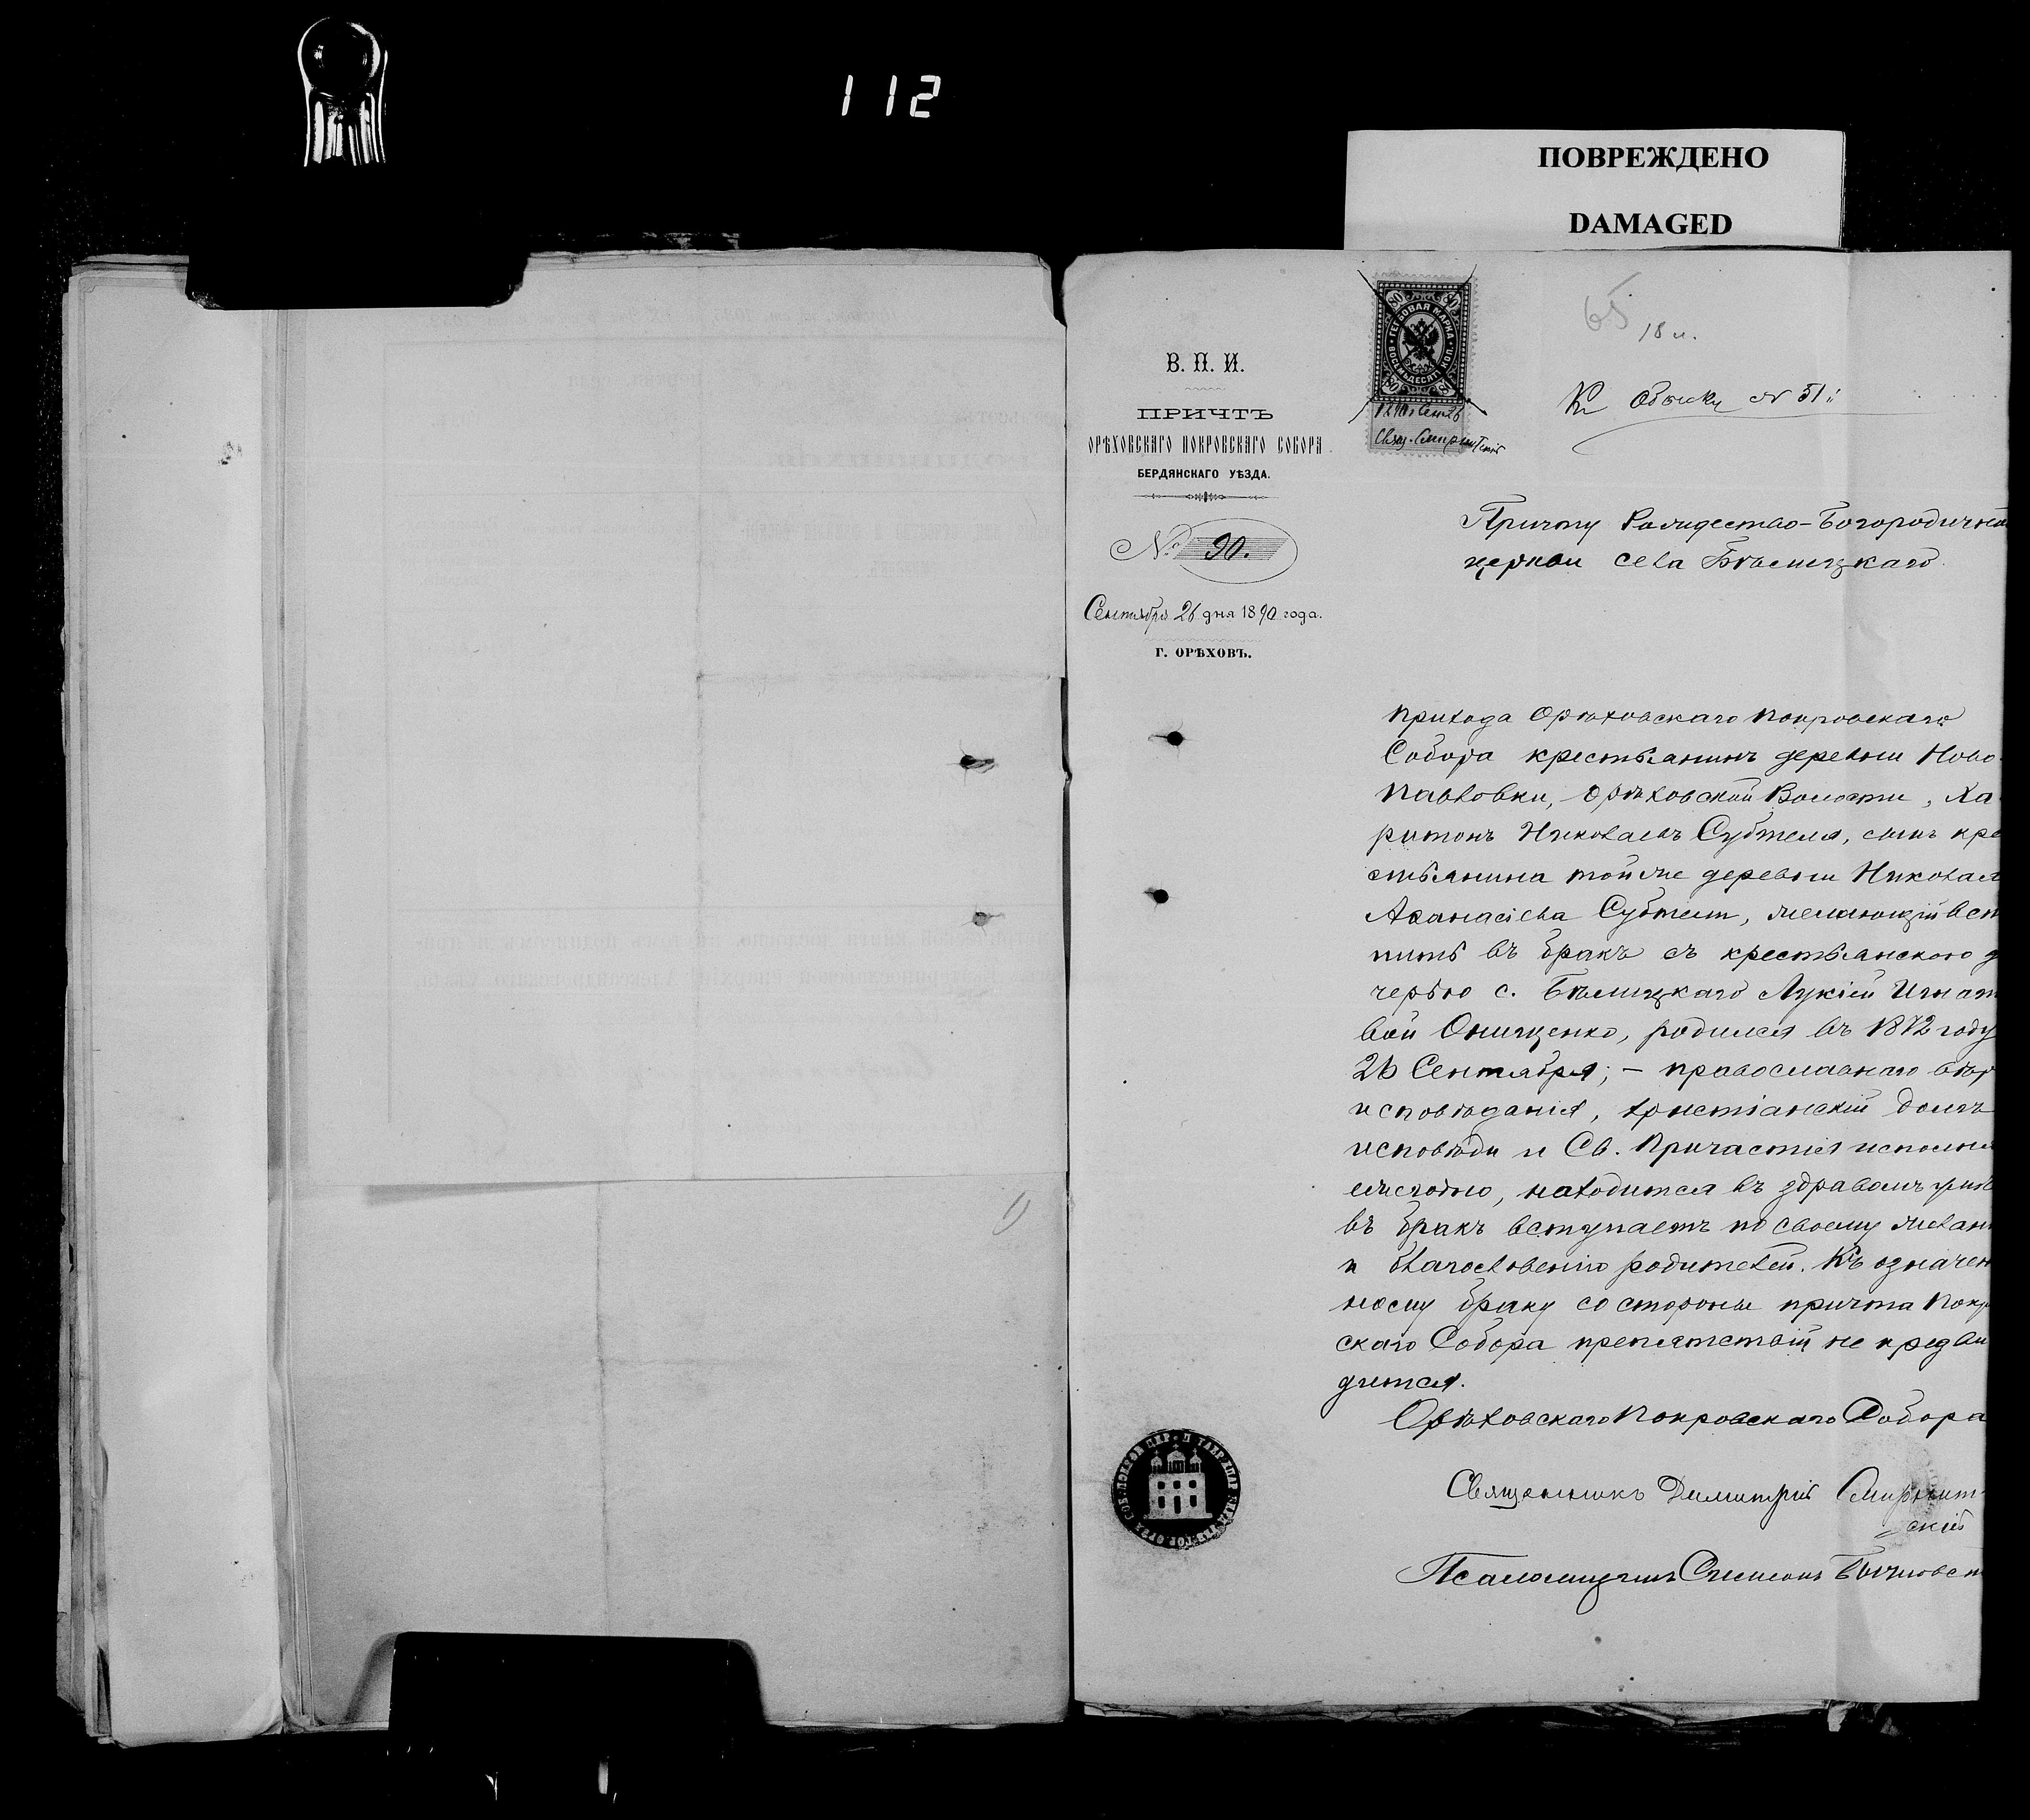 112
ПОВРЕЖДЕНО
DAMAGED
В. П. И.
ПРИЧТЪ
ОРѢХОВСКАГО ПОКРОВСКАГО СОБОРА
БЕРДЯНСКАГО УѢЗДА.
№ 90.
Сентября 26 дня 1890 года.
Г. ОРѢХОВЪ.
80 80
ГЕРБОВАЯ МАРКА
ВОСЕМДЕСЯТ КОП.
80
1890 Сент 26
Свящ. Смирнитскій
65
18 л.
Къ Обыску № 51й
Причту Рождество-Богородичной
церкви села Бѣлицкаго.
Прихода Орѣховскаго Покровскаго
Собора крестьянинъ деревни Ново
Павловки, Орѣховской Волости, Ха
ритонъ Николаевъ Субтеля, сынъ кре
стьянина той же деревни Николая
Аѳанасіева Субтели, желающій вст
пить въ бракъ съ крестьянскою д
черью с. Бѣлицкаго Лукіей Игнат
вой Онищенко, родился въ 1872 году
26 Сентября; – православнаго вѣр
исповѣданія, христіанскій долгъ
исповѣди и Св. Причастія исполня
ежегодно, находится въ здравомъ
въ бракъ вступаетъ по своему желан
и благословенію родителей. Къ означен
ному браку со стороны причта Покр
скаго Собора препятствій не предви
дится.
Орѣховскаго Покровскаго Собора
Священникъ Димитрій Смирнит-
скій
Псаломщикъ Симеонъ